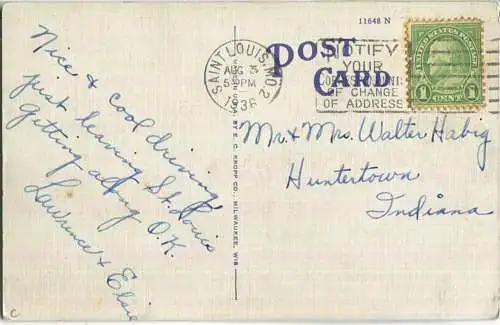 11648 N
POST CARD
SAINT LOUIS, MO. 2
AUG 3
5 30 PM
1936
NOTIFY
YOUR
OF CHANGE
OF ADDRESS
UNITED STATES POSTAGE
1 CENT 1
Nice & cool driving,
just leaving St. Louis
getting along O.K.
Lawrence & Elsie
BY E. C. KROPP CO., MILWAUKEE, WIS.
Mr & Mrs. Walter Habig
Huntertown
Indiana
C